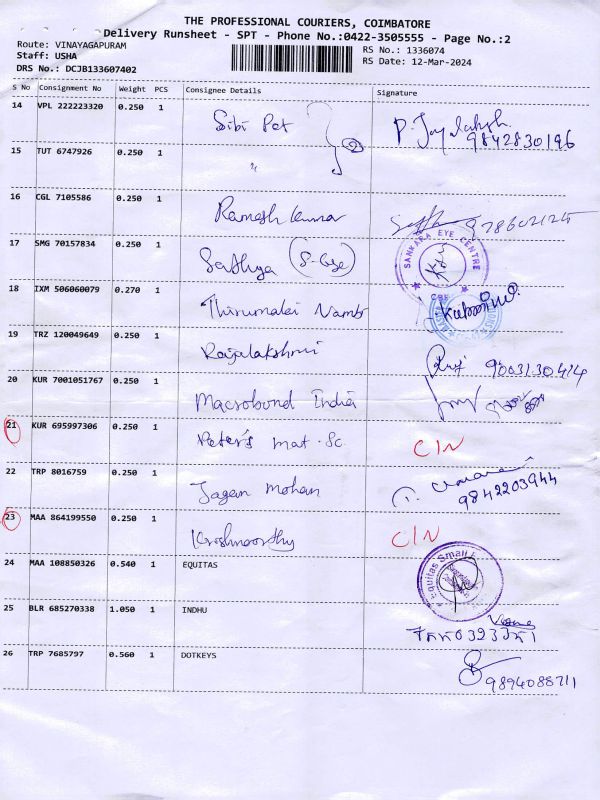 THE PROFESSIONAL COURIERS, COIMBATORE
Delivery Runsheet - SPT - Phone No.:0422-3505555 - Page No.:2
Route: VINAYAGAPURAM
Staff: USHA
DRS No.: DCJB133607402
RS No.: 1336074
RS Date: 12-Mar-2024
S No Consignment No Weight PCS Consignee Details Signature
14 VPL 222223320 0.250 1 Sibi Pat 2 P. Jayalaksh. 9842830196
15 TUT 6747926 0.250 1 "
16 CGL 7105586 0.250 1 Ramesh Kumar
17 SMG 70157834 0.250 1 Sathya (S-Eye) SANKARA EYE CENTRE
18 IXM 506060079 0.270 1 Thirumalai Nambi
19 TRZ 120049649 0.250 1 Rajalakshmi 9003130414
20 KUR 7001051767 0.250 1 Macrobond India
21 KUR 695997306 0.250 1 Peter's mat. Sc. CIN
22 TRP 8016759 0.250 1 Jagan Mohan 9842203944
23 MAA 864199550 0.250 1 Krishnoorthy CIN
24 MAA 108850326 0.540 1 EQUITAS Equitas Small F
25 BLR 685270338 1.050 1 INDHU
26 TRP 7685797 0.560 1 DOTKEYS 9894088711